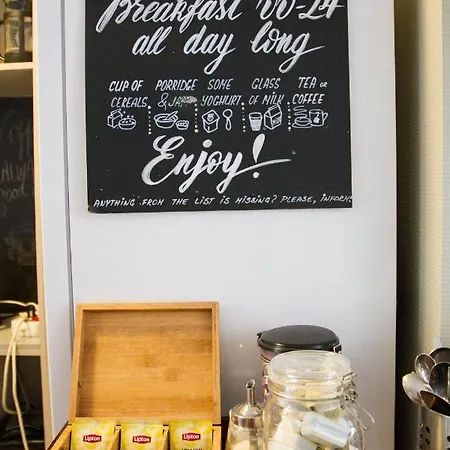 Breakfast 00-24
all day long
CUP OF CEREALS
PORRIDGE & JAM
SOME YOGHURT
GLASS OF MILK
TEA OR COFFEE
Enjoy!
ANYTHING FROM THE LIST IS MISSING? PLEASE, INFORM
Lipton
Lipton
Lipton